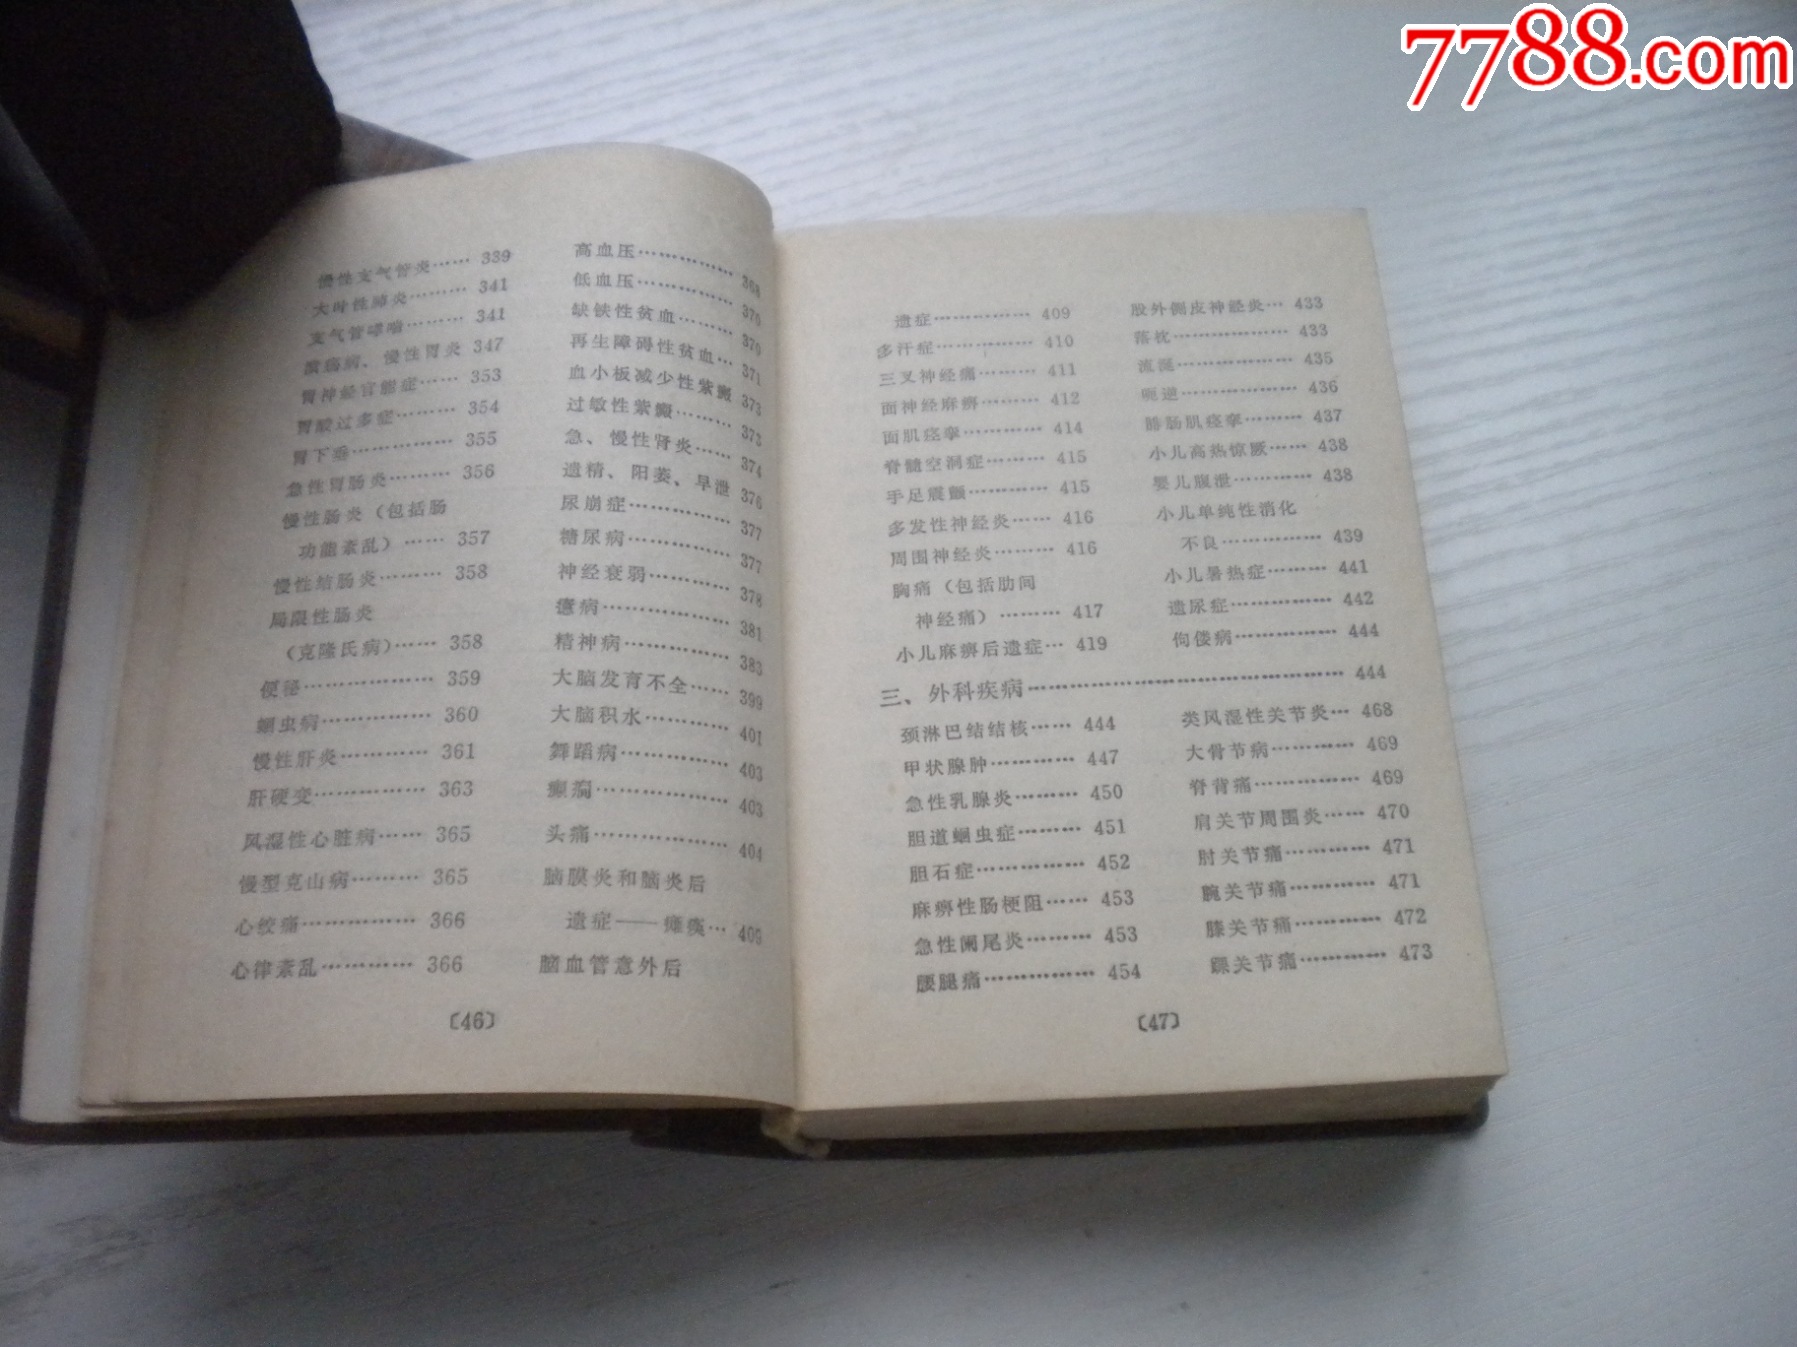 7788.com
慢性支气管炎…… 339
大叶性肺炎……… 341
支气管哮喘……… 341
溃疡病、慢性胃炎 347
胃神经官能症…… 353
胃酸过多症……… 354
胃下垂…………… 355
急性胃肠炎……… 356
慢性肠炎（包括肠
功能紊乱）…… 357
慢性结肠炎……… 358
局限性肠炎
（克隆氏病）…… 358
便秘……………… 359
蛔虫病…………… 360
慢性肝炎………… 361
肝硬变…………… 363
风湿性心脏病…… 365
慢型克山病……… 365
心绞痛…………… 366
心律紊乱………… 366
高血压…………… 368
低血压…………… 370
缺铁性贫血……… 370
再生障碍性贫血… 371
血小板减少性紫癜 373
过敏性紫癜……… 373
急、慢性肾炎…… 374
遗精、阳萎、早泄 376
尿崩症…………… 377
糖尿病…………… 377
神经衰弱………… 378
癔病……………… 381
精神病…………… 383
大脑发育不全…… 399
大脑积水………… 401
舞蹈病…………… 403
癫痫……………… 403
头痛……………… 404
脑膜炎和脑炎后
遗症——瘫痪… 409
脑血管意外后
〔46〕
遗症…………… 409
多汗症…………… 410
三叉神经痛……… 411
面神经麻痹……… 412
面肌痉挛………… 414
脊髓空洞症……… 415
手足震颤………… 415
多发性神经炎…… 416
周围神经炎……… 416
胸痛（包括肋间
神经痛）……… 417
小儿麻痹后遗症… 419
股外侧皮神经炎… 433
落枕……………… 433
流涎……………… 435
呃逆……………… 436
腓肠肌痉挛……… 437
小儿高热惊厥…… 438
婴儿腹泄………… 438
小儿单纯性消化
不良…………… 439
小儿暑热症……… 441
遗尿症…………… 442
佝偻病…………… 444
三、外科疾病…………………………………… 444
颈淋巴结结核…… 444
甲状腺肿………… 447
急性乳腺炎……… 450
胆道蛔虫症……… 451
胆石症…………… 452
麻痹性肠梗阻…… 453
急性阑尾炎……… 453
腰腿痛…………… 454
类风湿性关节炎… 468
大骨节病………… 469
脊背痛…………… 469
肩关节周围炎…… 470
肘关节痛………… 471
腕关节痛………… 471
膝关节痛………… 472
踝关节痛………… 473
〔47〕